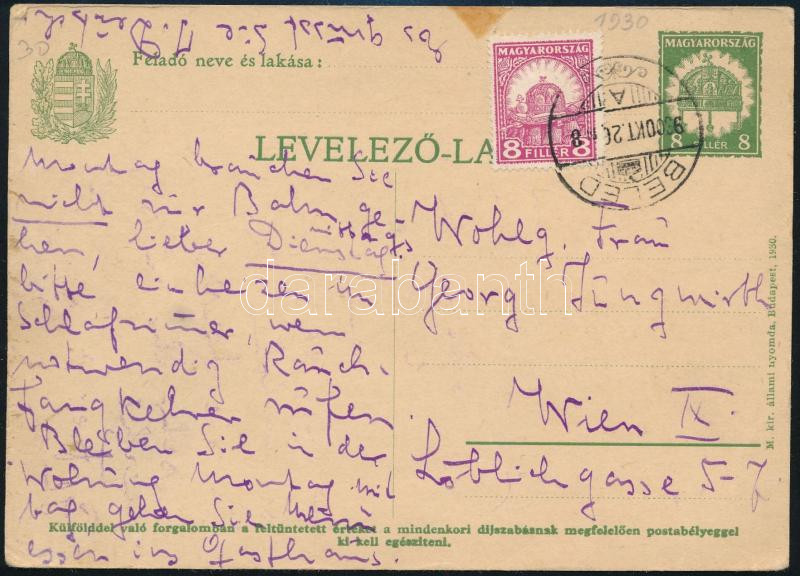 1930
30
Es grüsst Sie
Feladó neve és lakása :
MAGYARORSZÁG
8 FILLÉR 8
MAGYARORSZÁG
8 FILLÉR 8
BELED
A
930 OKT 26
LEVELEZŐ-LA
Montag brauchen Sie
nicht zur Bahn ge-
hen, lieber Dienstag
mittags
bitte einheizen im
Schlafzimmer, wenn
notwendig Rauch-
fangkehrer rufen.
Bleiben Sie in der
Wohnung Montag mit
tag gehen Sie
essen ins Gasthaus.
Wohlg. Frau
Georg Jungwirth
Wien IX.
Löblichgasse 5-7
darabanth
M. kir. állami nyomda, Budapest, 1930.
Külfölddel való forgalomban a feltüntetett értéket a mindenkori díjszabásnak megfelelően postabélyeggel
ki kell egészíteni.